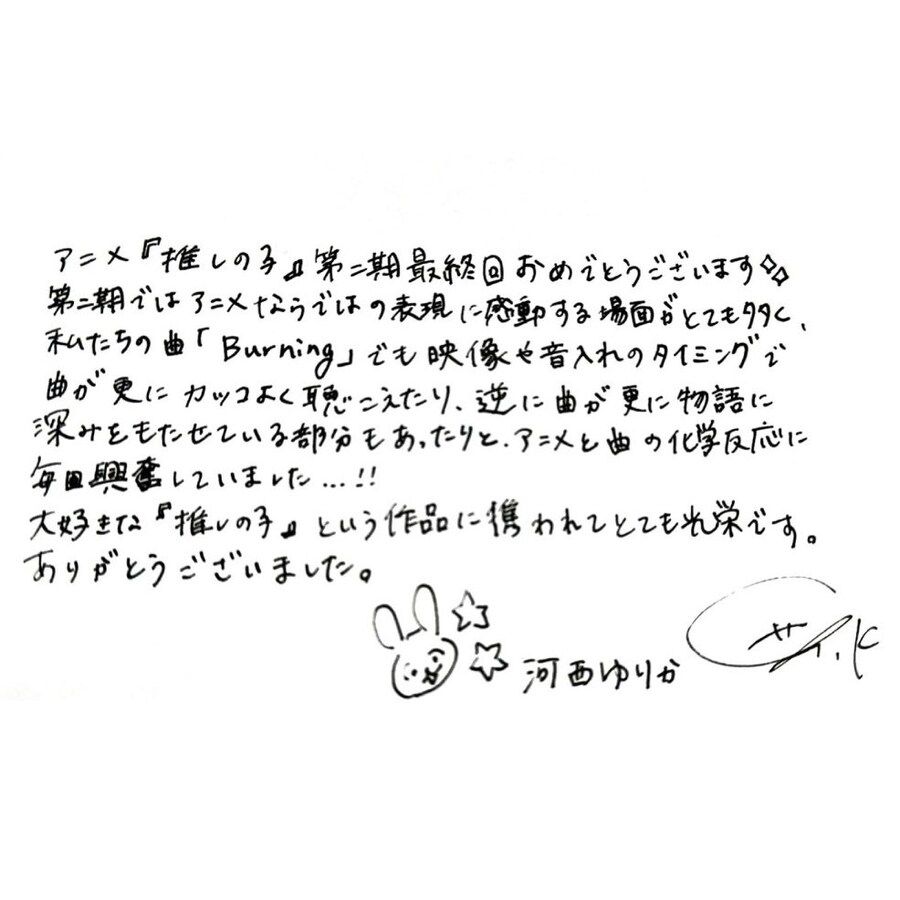 アニメ『推しの子』第二期最終回おめでとうございます✧✧
第二期ではアニメならではの表現に感動する場面がとても多く、
私たちの曲「Burning」でも映像や音入れのタイミングで
曲が更にカッコよく聴こえたり、逆に曲が更に物語に
深みをもたせている部分もあったりと、アニメと曲の化学反応に
毎回興奮していました…!!
大好きな『推しの子』という作品に携われてとても光栄です。
ありがとうございました。
河西ゆりか